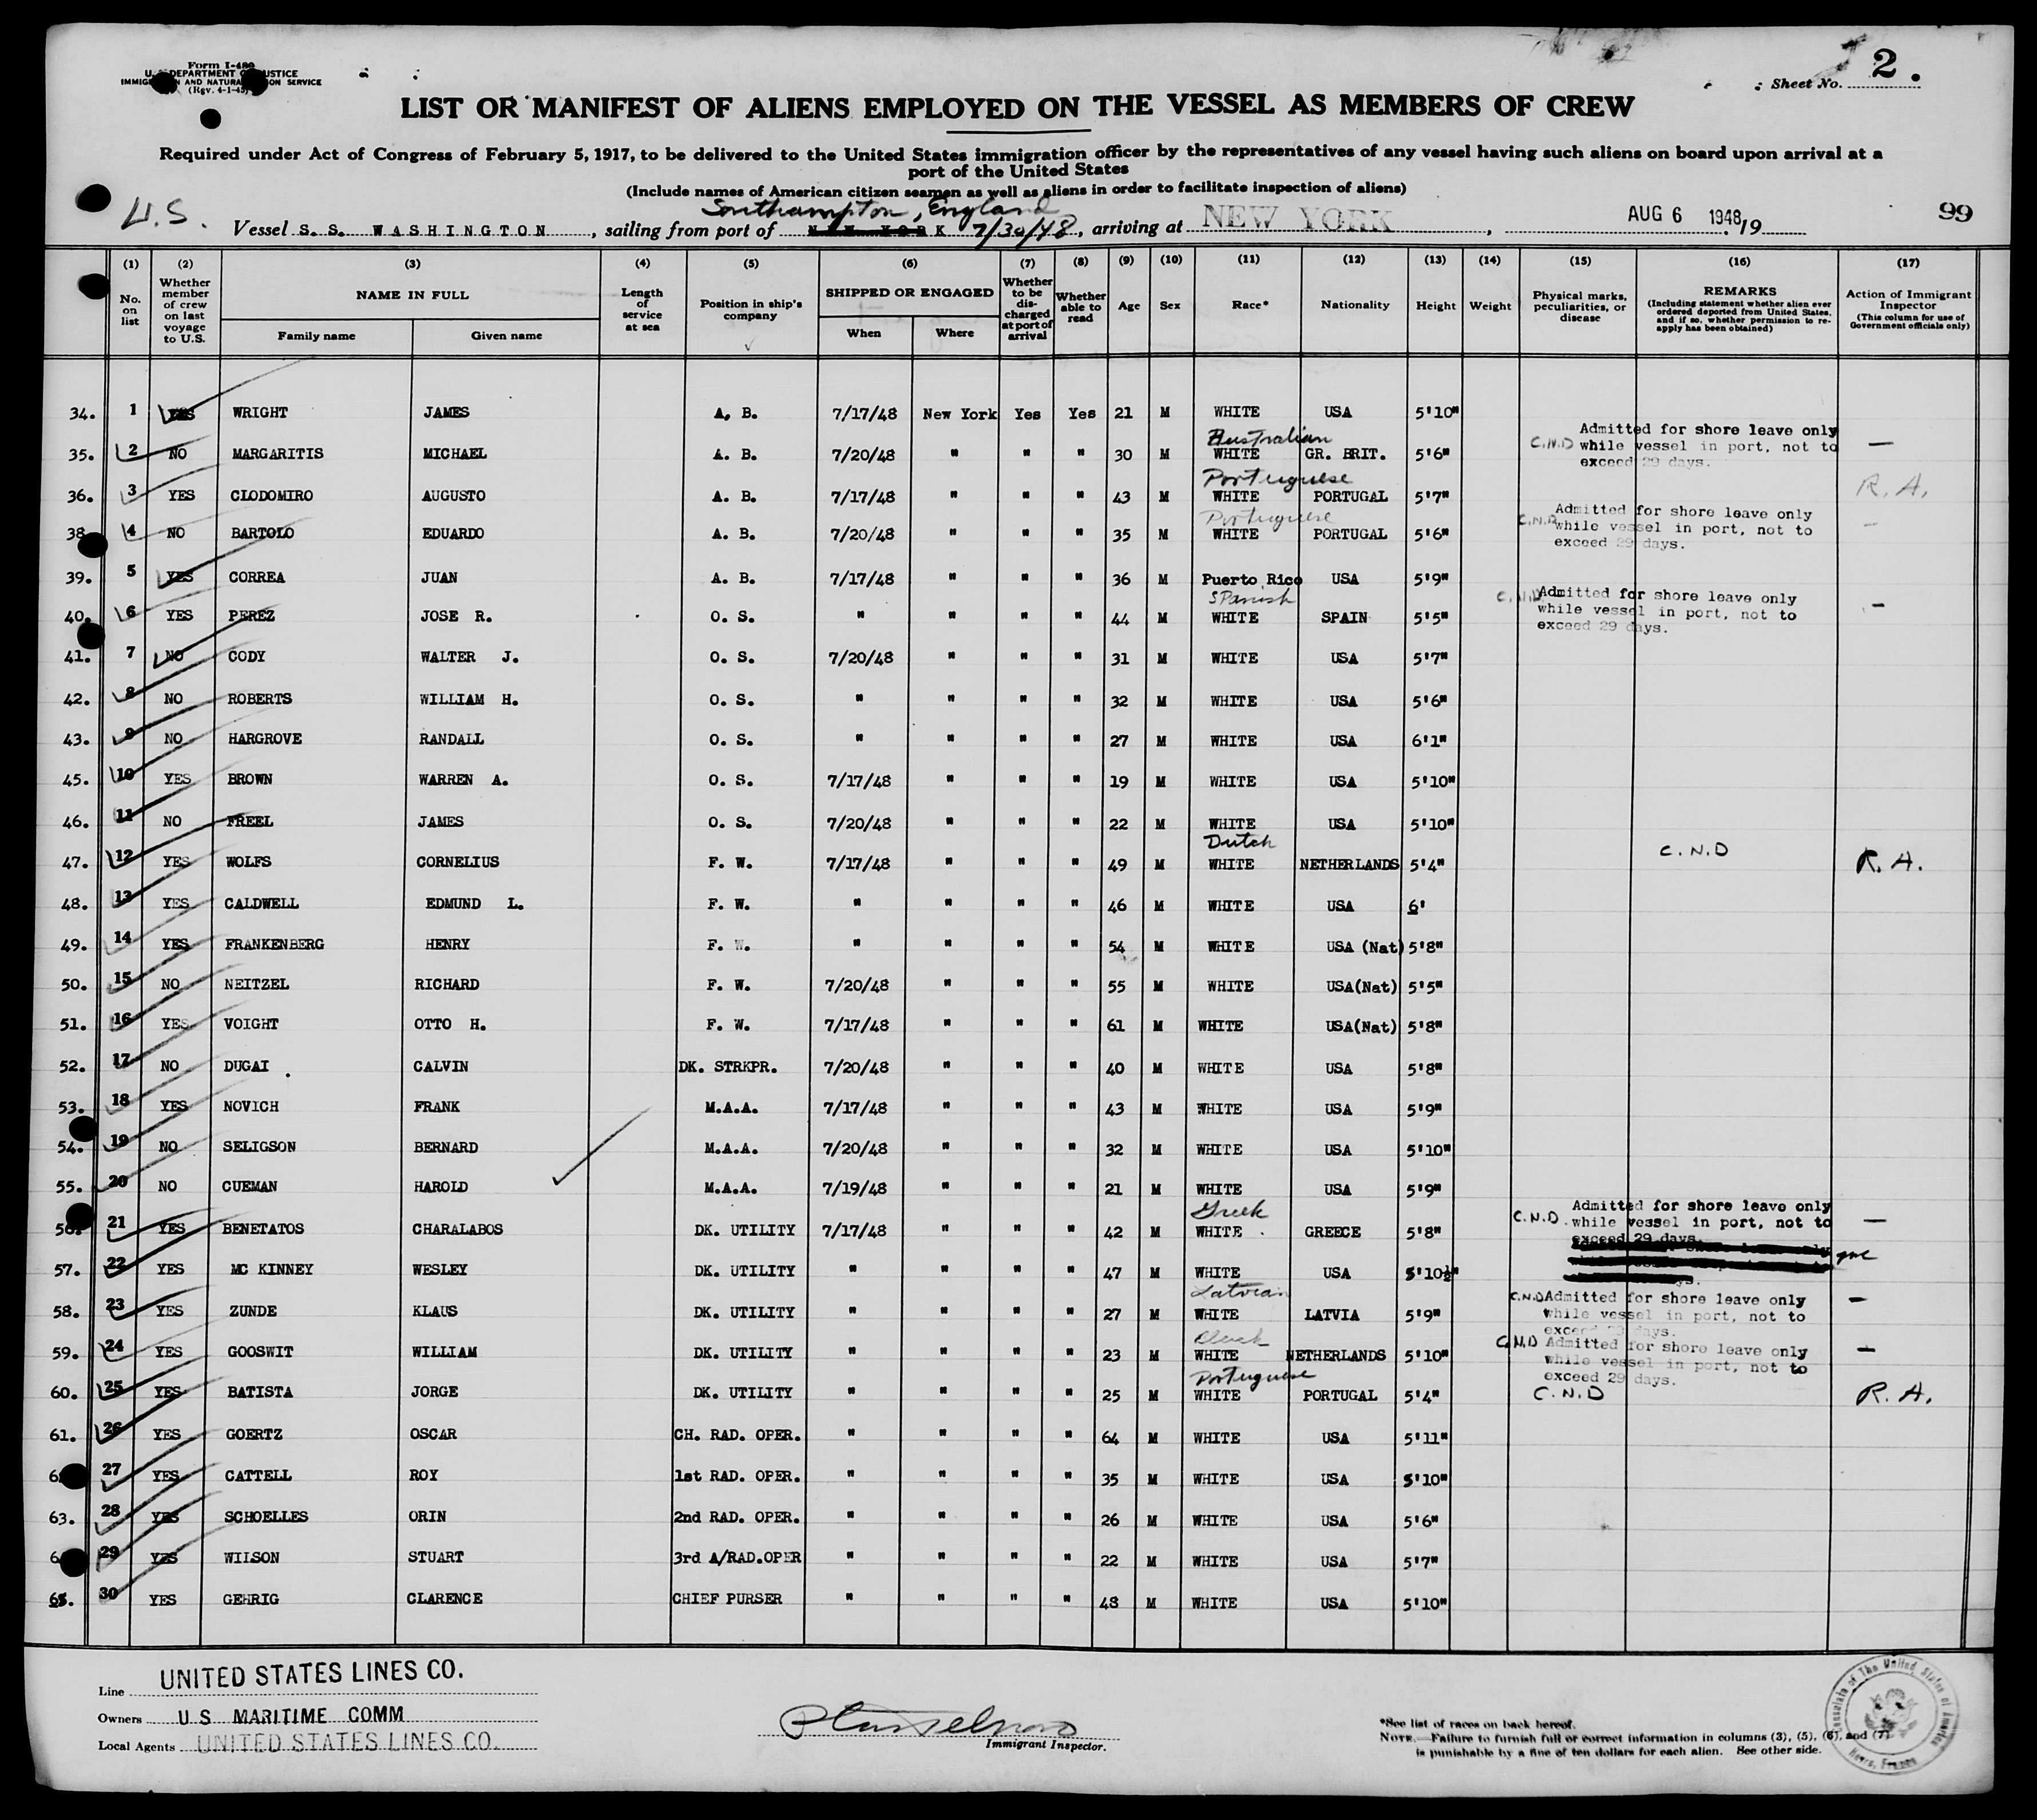 Form I-489
U. S. DEPARTMENT OF JUSTICE
IMMIGRATION AND NATURALIZATION SERVICE
(Rev. 4-1-45)
Sheet No. 2.
LIST OR MANIFEST OF ALIENS EMPLOYED ON THE VESSEL AS MEMBERS OF CREW
Required under Act of Congress of February 5, 1917, to be delivered to the United States immigration officer by the representatives of any vessel having such aliens on board upon arrival at a
port of the United States
(Include names of American citizen seamen as well as aliens in order to facilitate inspection of aliens)
Southampton, England
U.S. Vessel S. S. WASHINGTON, sailing from port of NEW YORK 7/30/48, arriving at NEW YORK, AUG 6 1948, 19 99
(1) (2) (3) (4) (5) (6) (7) (8) (9) (10) (11) (12) (13) (14) (15) (16) (17)
No. on list Whether member of crew on last voyage to U.S. NAME IN FULL Family name Given name Length of service at sea Position in ship's company SHIPPED OR ENGAGED When Where Whether to be discharged at port of arrival Whether able to read Age Sex Race* Nationality Height Weight Physical marks, peculiarities, or disease REMARKS (Including statement whether alien ever ordered deported from United States, and if so, whether permission to re-apply has been obtained) Action of Immigrant Inspector (This column for use of Government officials only)
34. 1 YES WRIGHT JAMES A. B. 7/17/48 New York Yes Yes 21 M WHITE USA 5'10"
Australian Admitted for shore leave only
35. 2 NO MARGARITIS MICHAEL A. B. 7/20/48 " " " 30 M WHITE GR. BRIT. 5'6" C.N.D while vessel in port, not to —
exceed 29 days.
Portuguese
36. 3 YES CLODOMIRO AUGUSTO A. B. 7/17/48 " " " 43 M WHITE PORTUGAL 5'7" R.A.
Portuguese Admitted for shore leave only
38. 4 NO BARTOLO EDUARDO A. B. 7/20/48 " " " 35 M WHITE PORTUGAL 5'6" C.N.D while vessel in port, not to —
exceed 29 days.
39. 5 YES CORREA JUAN A. B. 7/17/48 " " " 36 M Puerto Rico USA 5'9"
Spanish C.N.D Admitted for shore leave only
40. 6 YES PEREZ JOSE R. O. S. " " " " 44 M WHITE SPAIN 5'5" while vessel in port, not to —
exceed 29 days.
41. 7 NO CODY WALTER J. O. S. 7/20/48 " " " 31 M WHITE USA 5'7"
42. 8 NO ROBERTS WILLIAM H. O. S. " " " " 32 M WHITE USA 5'6"
43. 9 NO HARGROVE RANDALL O. S. " " " " 27 M WHITE USA 6'1"
45. 10 YES BROWN WARREN A. O. S. 7/17/48 " " " 19 M WHITE USA 5'10"
46. 11 NO FREEL JAMES O. S. 7/20/48 " " " 22 M WHITE USA 5'10"
Dutch
47. 12 YES WOLFS CORNELIUS F. W. 7/17/48 " " " 49 M WHITE NETHERLANDS 5'4" C.N.D R.A.
48. 13 YES CALDWELL EDMUND L. F. W. " " " " 46 M WHITE USA 6'
49. 14 YES FRANKENBERG HENRY F. W. " " " " 54 M WHITE USA (Nat) 5'8"
50. 15 NO NEITZEL RICHARD F. W. 7/20/48 " " " 55 M WHITE USA(Nat) 5'5"
51. 16 YES VOIGHT OTTO H. F. W. 7/17/48 " " " 61 M WHITE USA(Nat) 5'8"
52. 17 NO DUGAI CALVIN DK. STRKPR. 7/20/48 " " " 40 M WHITE USA 5'8"
53. 18 YES NOVICH FRANK M.A.A. 7/17/48 " " " 43 M WHITE USA 5'9"
54. 19 NO SELIGSON BERNARD M.A.A. 7/20/48 " " " 32 M WHITE USA 5'10"
55. 20 NO CUEMAN HAROLD M.A.A. 7/19/48 " " " 21 M WHITE USA 5'9"
Greek Admitted for shore leave only
56. 21 YES BENETATOS CHARALABOS DK. UTILITY 7/17/48 " " " 42 M WHITE GREECE 5'8" C.N.D. while vessel in port, not to —
exceed 29 days.
57. 22 YES MC KINNEY WESLEY DK. UTILITY " " " " 47 M WHITE USA 5'10½"
Latvian C.N.D Admitted for shore leave only —
58. 23 YES ZUNDE KLAUS DK. UTILITY " " " " 27 M WHITE LATVIA 5'9" while vessel in port, not to
exceed 29 days.
Dutch C.N.D Admitted for shore leave only —
59. 24 YES GOOSWIT WILLIAM DK. UTILITY " " " " 23 M WHITE NETHERLANDS 5'10" while vessel in port, not to
exceed 29 days.
Portuguese
60. 25 YES BATISTA JORGE DK. UTILITY " " " " 25 M WHITE PORTUGAL 5'4" C.N.D R.A.
61. 26 YES GOERTZ OSCAR CH. RAD. OPER. " " " " 64 M WHITE USA 5'11"
6 27 YES CATTELL ROY 1st RAD. OPER. " " " " 35 M WHITE USA 5'10"
63. 28 YES SCHOELLES ORIN 2nd RAD. OPER. " " " " 26 M WHITE USA 5'6"
6 29 YES WILSON STUART 3rd A/RAD.OPER " " " " 22 M WHITE USA 5'7"
65. 30 YES GEHRIG CLARENCE CHIEF PURSER " " " " 48 M WHITE USA 5'10"
Line UNITED STATES LINES CO.
Owners U S MARITIME COMM
Local Agents UNITED STATES LINES CO.
Immigrant Inspector.
*See list of races on back hereof.
NOTE.—Failure to furnish full or correct information in columns (3), (5), (6), and (7)
is punishable by a fine of ten dollars for each alien. See other side.
Consulate of The United States of America
Havre, France